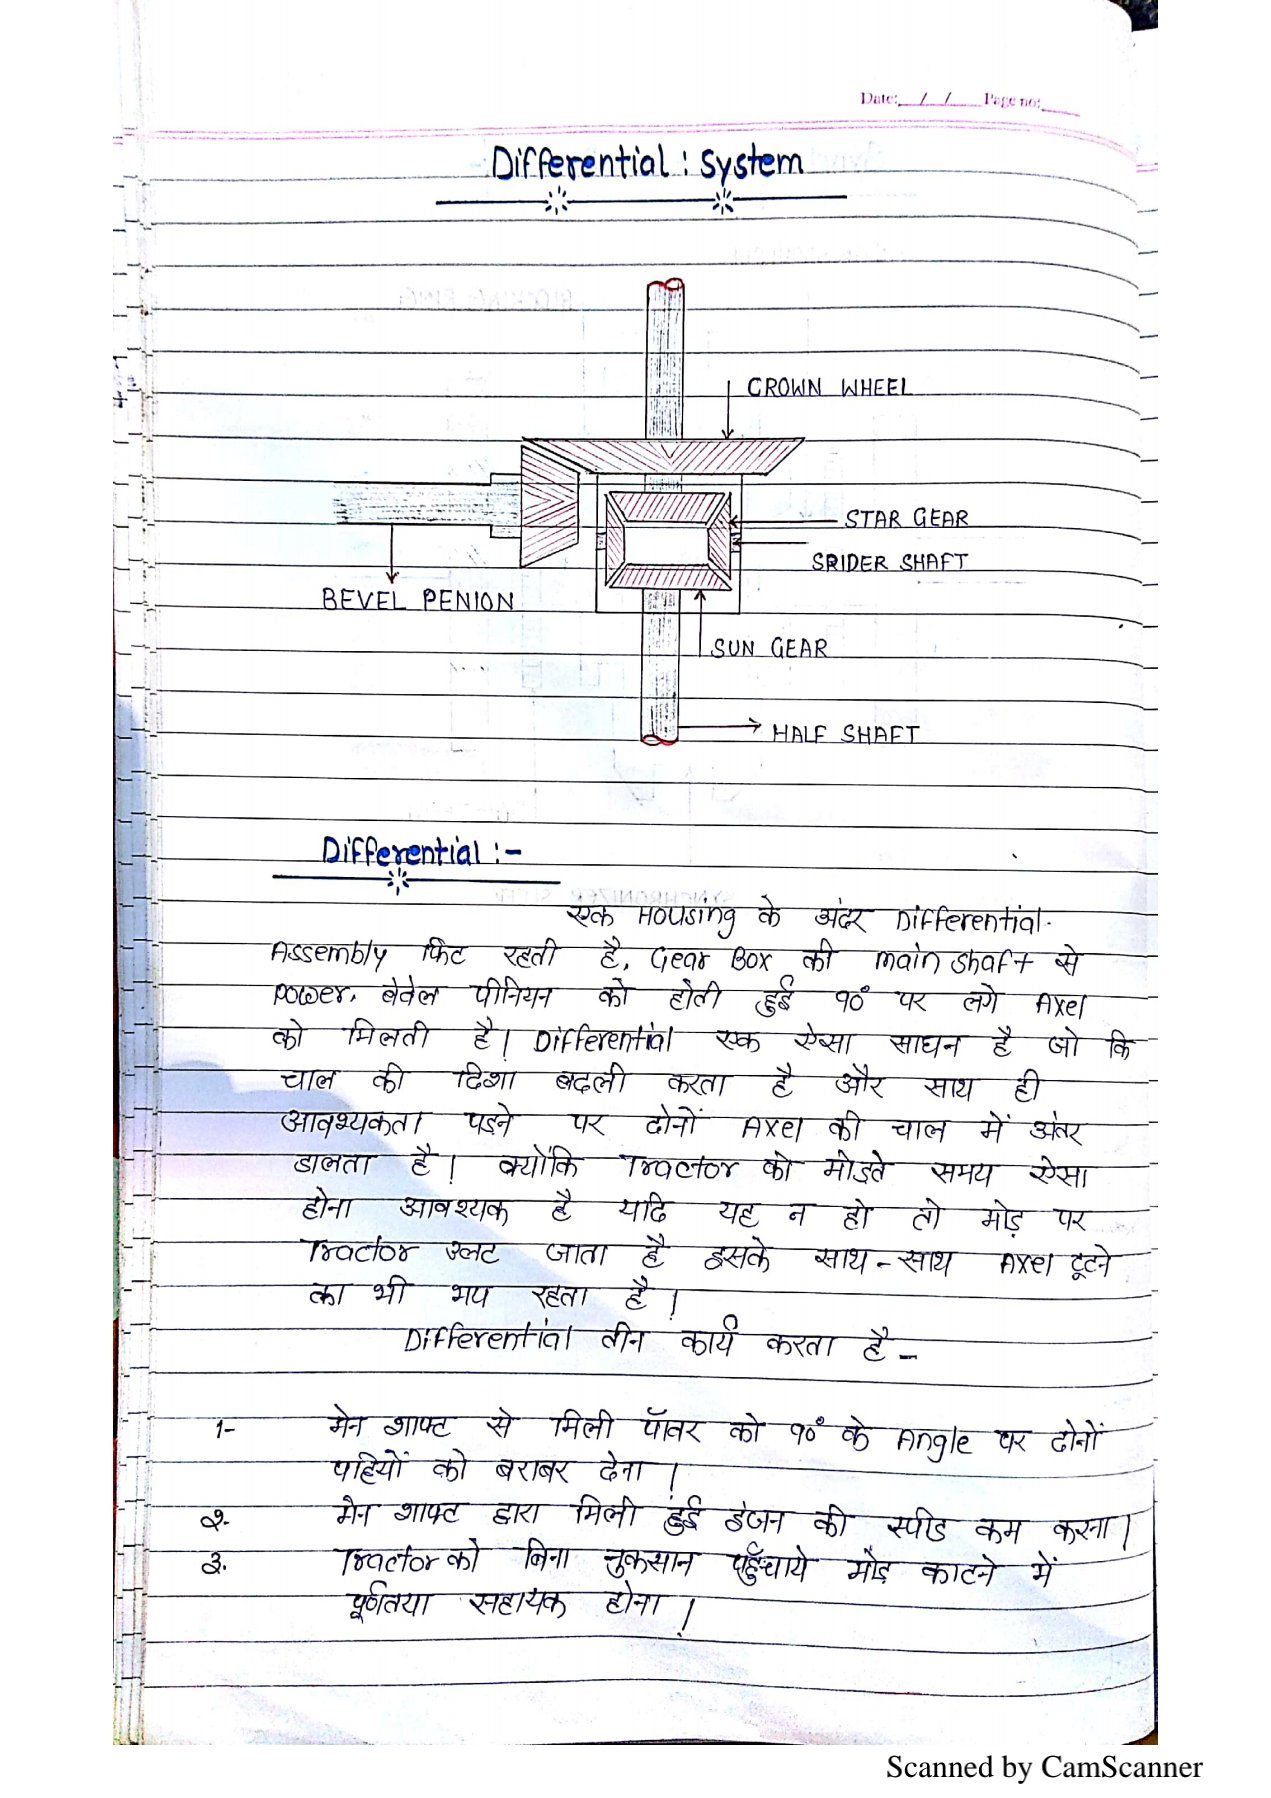 Date: / / Page no:
Differential : System
CROWN WHEEL
STAR GEAR
SPIDER SHAFT
BEVEL PENION
SUN GEAR
HALF SHAFT
Differential :-
एक Housing के अंदर Differential.
Assembly फिट रहती है, Gear Box की main shaft से
Power, बेवेल पीनियन को होती हुई १०° पर लगे Axel
को मिलती है। Differential एक ऐसा साधन है जो कि
चाल की दिशा बदली करता है और साथ ही
आवश्यकता पड़ने पर दोनों Axel की चाल में अंतर
डालता है। क्योंकि Tractor को मोड़ते समय ऐसा
होना आवश्यक है यदि यह न हो तो मोड़ पर
Tractor उलट जाता है इसके साथ-साथ Axel टूटने
का भी भय रहता है।
Differential तीन कार्य करता है -
1- मेन शाफ्ट से मिली पॉवर को १०° के Angle पर दोनों
पहियों को बराबर देना।
२. मेन शाफ्ट द्वारा मिली हुई इंजन की स्पीड कम करना।
३. Tractor को बिना नुकसान पहुँचाये मोड़ काटने में
पूर्णतया सहायक होना।
Scanned by CamScanner